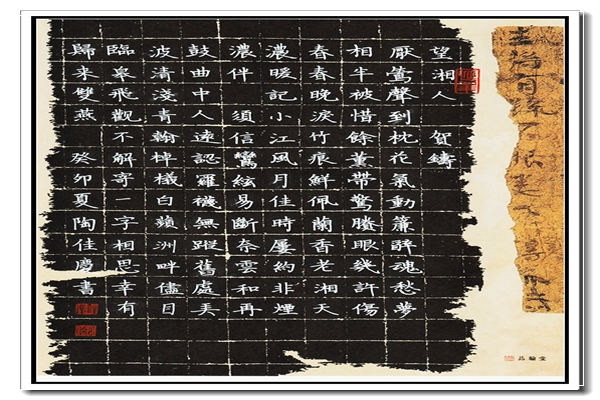 望湘人 賀鑄
厭鶯聲到枕花氣動簾醉魂愁夢
相半被惜餘薰帶驚賸眼幾許傷
春春晚淚竹痕鮮佩蘭香老湘天
濃暖記小江風月佳時屢約非煙
濃伴 須信鸞絃易斷奈雲和再
鼓曲中人遠認羅襪無蹤舊處弄
波清淺青翰棹檥白蘋洲畔儘目
臨皋飛觀不解寄一字相思幸有
歸来雙燕 癸卯夏陶佳慶書